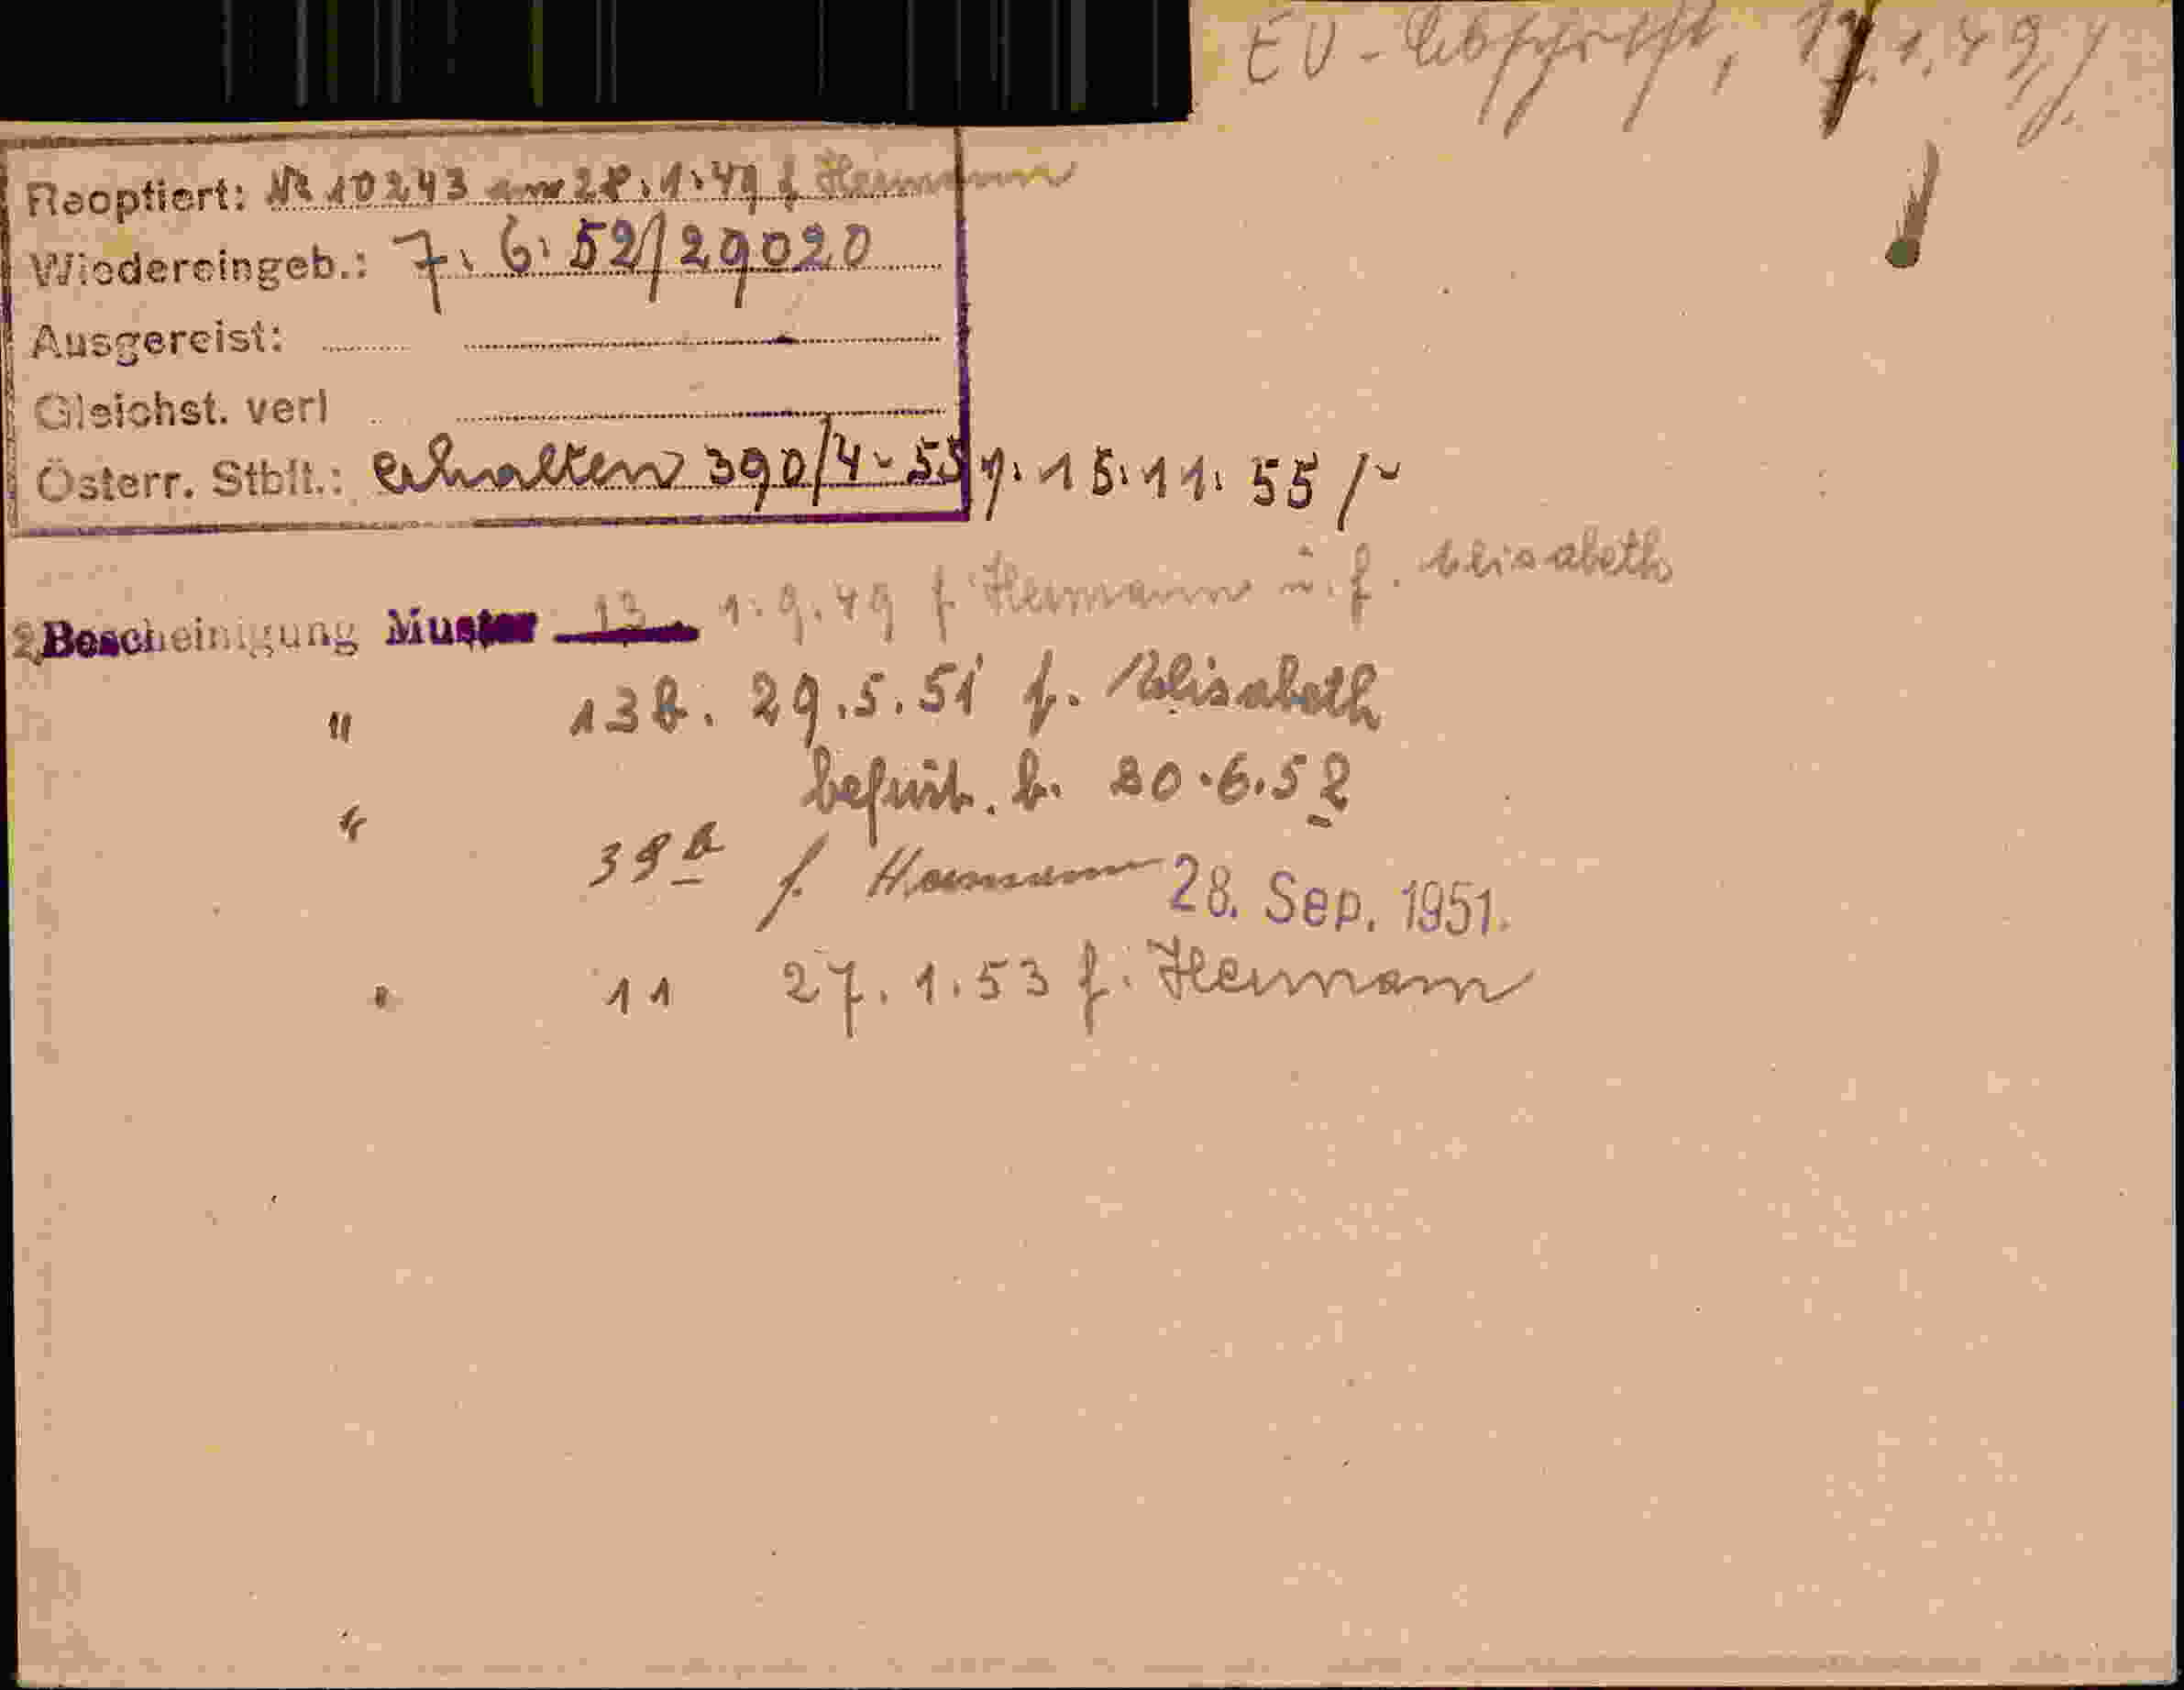 EU-Abschrift, 17.1.49
Reoptiert: Nr 10243 am 28.1.49 f Hermann
Wiedereingeb.: 7.6.52/29020
Ausgereist:
Gleichst. verl
Österr. Stblt.: erhalten 390/4-55 v. 15.11.55
2 Bescheinigung Muster 13 1.9.49 f Hermann u. f. Elisabeth
" 13b. 29.5.51 f. Elisabeth
befrist. b. 20.6.52
" 38b f. Hermann 28. Sep. 1951.
" 11 27.1.53 f. Hermann